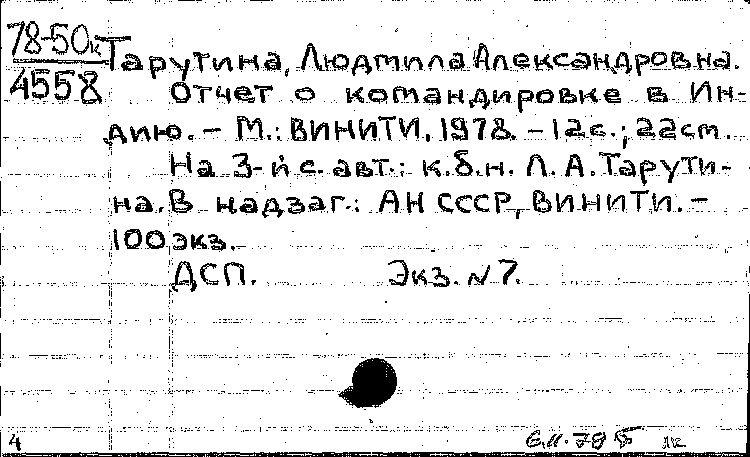 78-50к
4558
Тарутина, Людмила Александровна.
Отчет о командировке в Ин-
дию. - М.: ВИНИТИ, 1978. - 12с.; 22см.
На 3-й с. авт.: к.б.н. Л. А. Тарути-
на. В надзаг.: АН СССР, ВИНИТИ. -
100 экз.
ДСП. Экз. N 7.
4
6.11.78